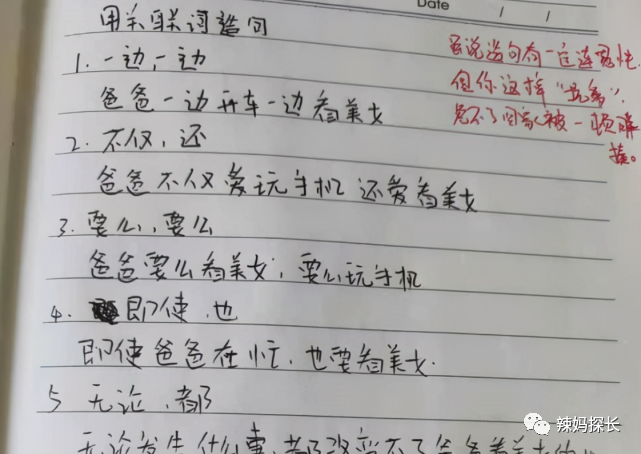 Date / /
用关联词造句
1. 一边,一边
爸爸一边开车一边看美女
2. 不仅,还
爸爸不仅爱玩手机 还爱看美女
3. 要么,要么
爸爸要么看美女,要么玩手机
4. 即使,也
即使爸爸在忙,也要看美女.
5 无论,都
无论发生什么事,都改变不了爸爸看美女的
虽说造句有一定连贯性.
但你这样“坑爹”.
免不了回家被一顿胖
揍。
辣妈探长